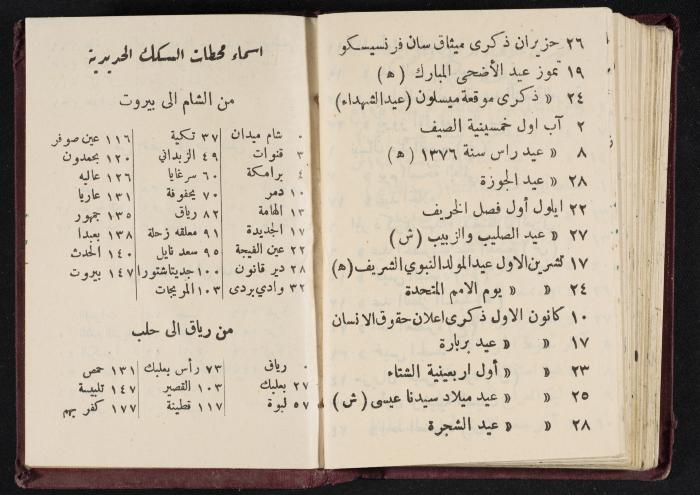 ٢٦ حزيران ذكرى ميثاق سان فرنسيسكو
١٩ تموز عيد الأضحى المبارك (ه)
٢٤ » ذكرى موقعة ميسلون (عيد الشهداء)
٢ آب اول خمسينية الصيف
٨ » عيد راس سنة ١٣٧٦ (ه)
٢٨ » عيد الجوزة
٢٢ ايلول أول فصل الخريف
٢٧ » عيد الصليب والزبيب (ش)
١٧ تشرين الاول عيد المولد النبوي الشريف (ه)
٢٤ » » يوم الامم المتحدة
١٠ كانون الاول ذكرى اعلان حقوق الانسان
١٧ » » عيد بربارة
٢٣ » » أول اربعينية الشتاء
٢٥ » » عيد ميلاد سيدنا عيسى (ش)
٢٨ » » عيد الشجرة
اسماء محطات السكك الحديدية
من الشام الى بيروت
٠ شام ميدان ٣٧ تكية ١١٦ عين صوفر
٣ قنوات ٤٩ الزبداني ١٢٠ بحمدون
٤ برامكة ٦٠ سرغايا ١٢٦ عاليه
١٠ دمر ٧٠ يحفوفة ١٣١ عاريا
١٣ الهامة ٨٢ رياق ١٣٥ جمهور
١٧ الجديدة ٩١ معلقه زحلة ١٣٨ بعبدا
٢٢ عين الفيجة ٩٥ سعد نايل ١٤٠ الحدث
٢٨ دير قانون ١٠٠ جديتا شتورا ١٤٧ بيروت
٣٢ وادي بردى ١٠٣ المريجات
من رياق الى حلب
٠ رياق ٧٣ رأس بعلبك ١٣١ حمص
٢٧ بعلبك ١٠٣ القصير ١٤٧ تلبيسة
٥٧ لبوة ١١٧ قطينة ١٧٧ كفر بهم